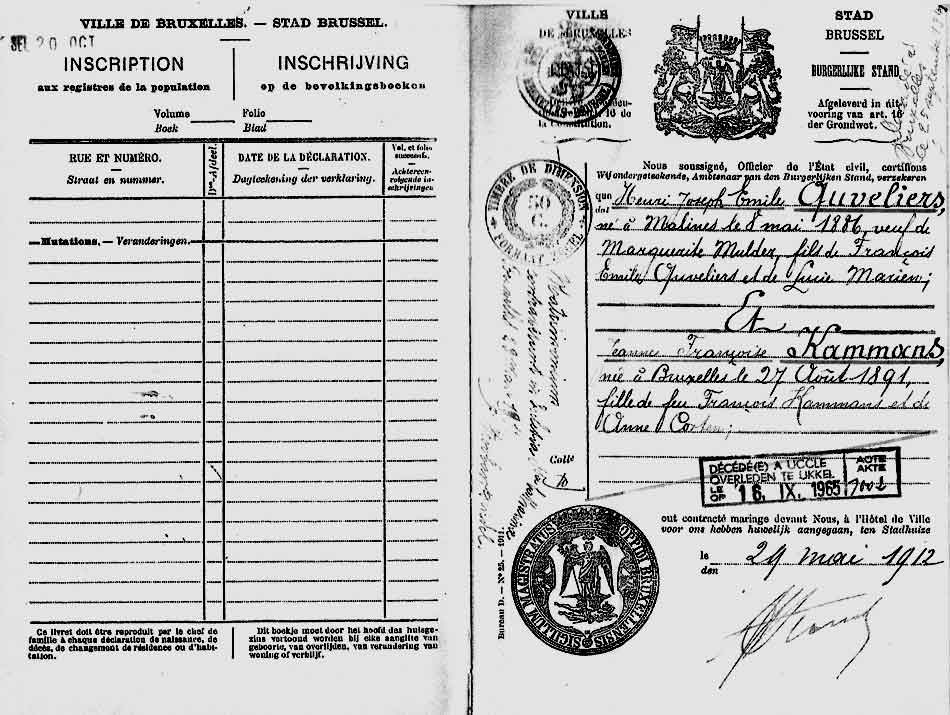 VILLE DE BRUXELLES. — STAD BRUSSEL.
20 OCT
INSCRIPTION
aux registres de la population
INSCHRIJVING
op de bevolkingsboeken
Volume Folio
Boek Blad
RUE ET NUMÉRO.
Straat en nummer.
DATE DE LA DÉCLARATION.
Dagteekening der verklaring.
Vol. et folio
successifs.
Achtereen-
volgende in-
schrijvingen
Mutations. — Veranderingen.
Ce livret doit être reproduit par le chef de
famille à chaque déclaration de naissance, de
décès, de changement de résidence ou d'habi-
tation.
Dit boekje moet door het hoofd des huisge-
zins vertoond worden bij elke aangifte van
geboorte, van overlijden, van verandering van
woning of verblijf.
VILLE
DE BRUXELLES
16 de
la Constitution.
STAD
BRUSSEL
BURGERLIJKE STAND.
Afgeleverd in uit
voering van art. 16
der Grondwet.
TIMBRE DE DIMENSION
50
C.
Nous soussigné, Officier de l'État civil, certifions
Wij ondergeteekende, Ambtenaar van den Burgerlijken Stand, verzekeren
que Henri Joseph Emile Quveliers,
dat né à Malines le 8 mai 1886, veuf de
Marguerite Mulder, fils de François
Emile Quveliers et de Lucie Marien;
Et
Jeanne Françoise Kammans,
née à Bruxelles le 27 Août 1891,
fille de feu François Kammans et de
Anne
Collé
DÉCÉDÉ(E) A UCCLE
OVERLEDEN TE UKKEL
LE
OP 16. IX. 1965
ACTE
AKTE
ont contracté mariage devant Nous, à l'Hôtel de Ville
voor ons hebben huwelijk aangegaan, ten Stadhuize
le
den 29 mai 1912
Bureau D. — N° 25. — 1911.
SIGILLUM MAGISTRATUS OPPIDI BRUXELLENSIS